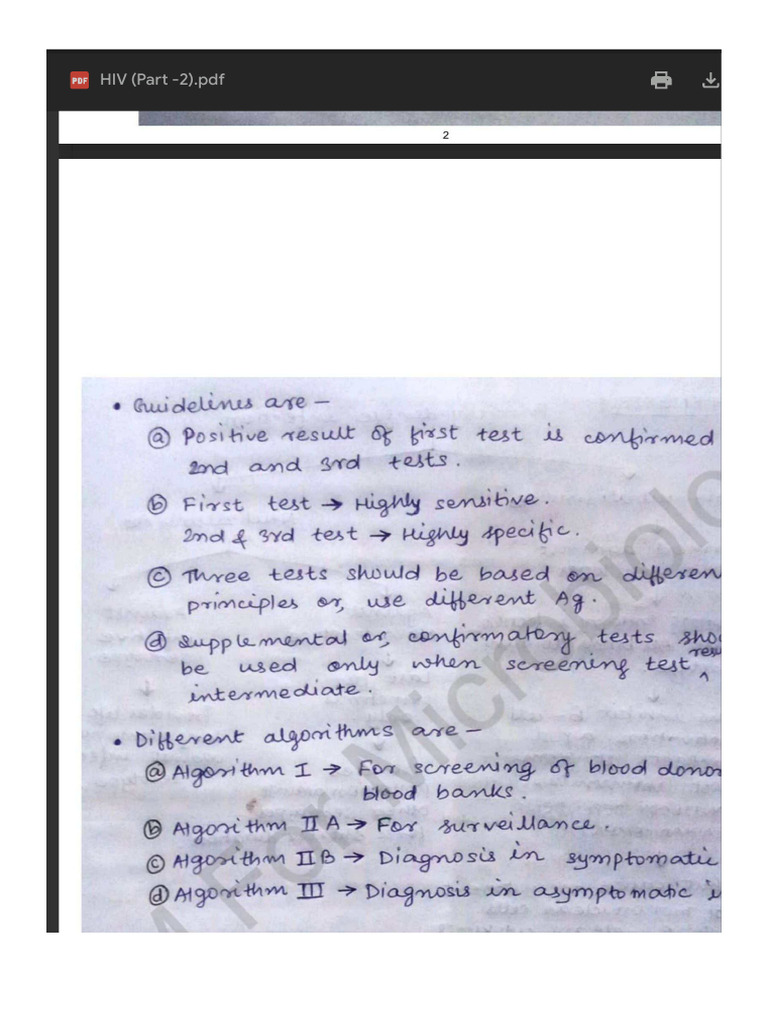 PDF HIV (Part -2).pdf
2
• Guidelines are -
(a) Positive result of first test is confirmed
2nd and 3rd tests.
(b) First test → Highly sensitive.
2nd & 3rd test → Highly specific.
(c) Three tests should be based on differen
principles or, use different Ag.
(d) Supplemental or, confirmatory tests sho
be used only when screening test ^ resu
intermediate.
• Different algorithms are -
(a) Algorithm I → For screening of blood donor
blood banks.
(b) Algorithm II A → For surveillance.
(c) Algorithm II B → Diagnosis in symptomatic
(d) Algorithm III → Diagnosis in asymptomatic i
M For Microbiolo